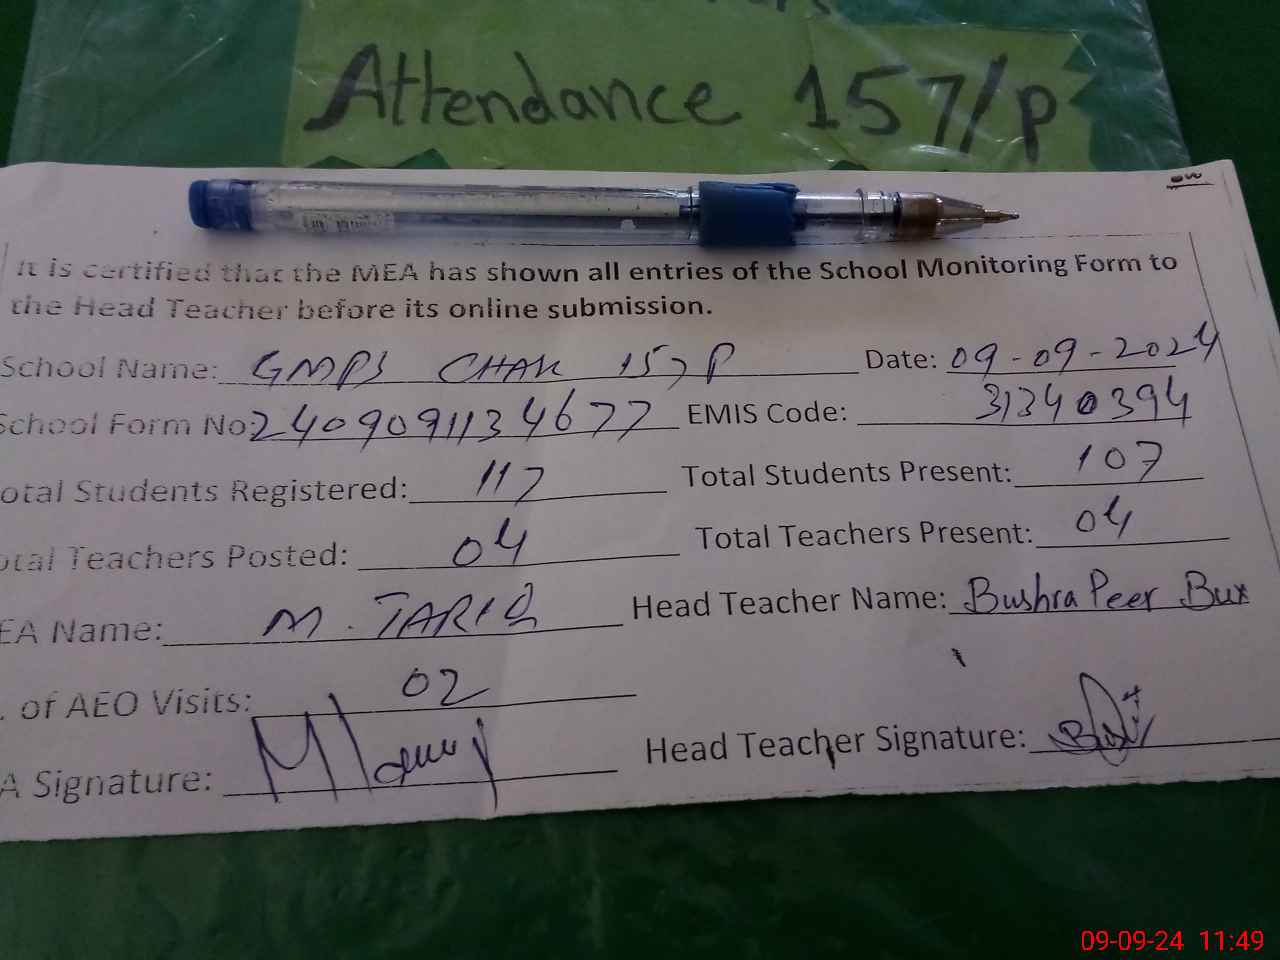 Attendance 157/P
It is certified that the MEA has shown all entries of the School Monitoring Form to
the Head Teacher before its online submission.
School Name: GMPS CHAK 157 P Date: 09-09-2024
School Form No: 2409091134677 EMIS Code: 31340394
otal Students Registered: 117 Total Students Present: 107
otal Teachers Posted: 04 Total Teachers Present: 04
EA Name: M. TARIQ Head Teacher Name: Bushra Peer Bux
. of AEO Visits: 02
A Signature: Head Teacher Signature:
09-09-24 11:49